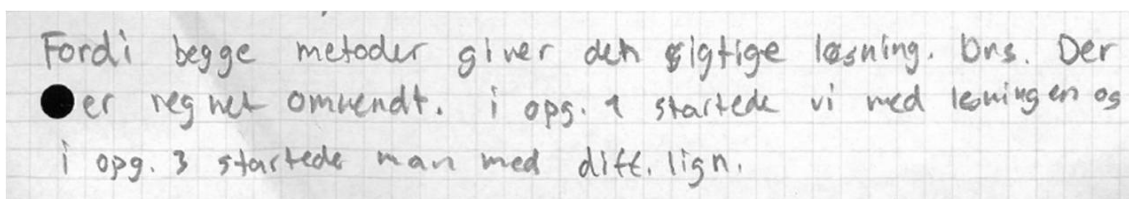 Fordi begge metoder giver den rigtige løsning. Dvs. Der
er regnet omvendt. i opg. 1 startede vi med løsningen og
i opg. 3 startede man med diff. lign.